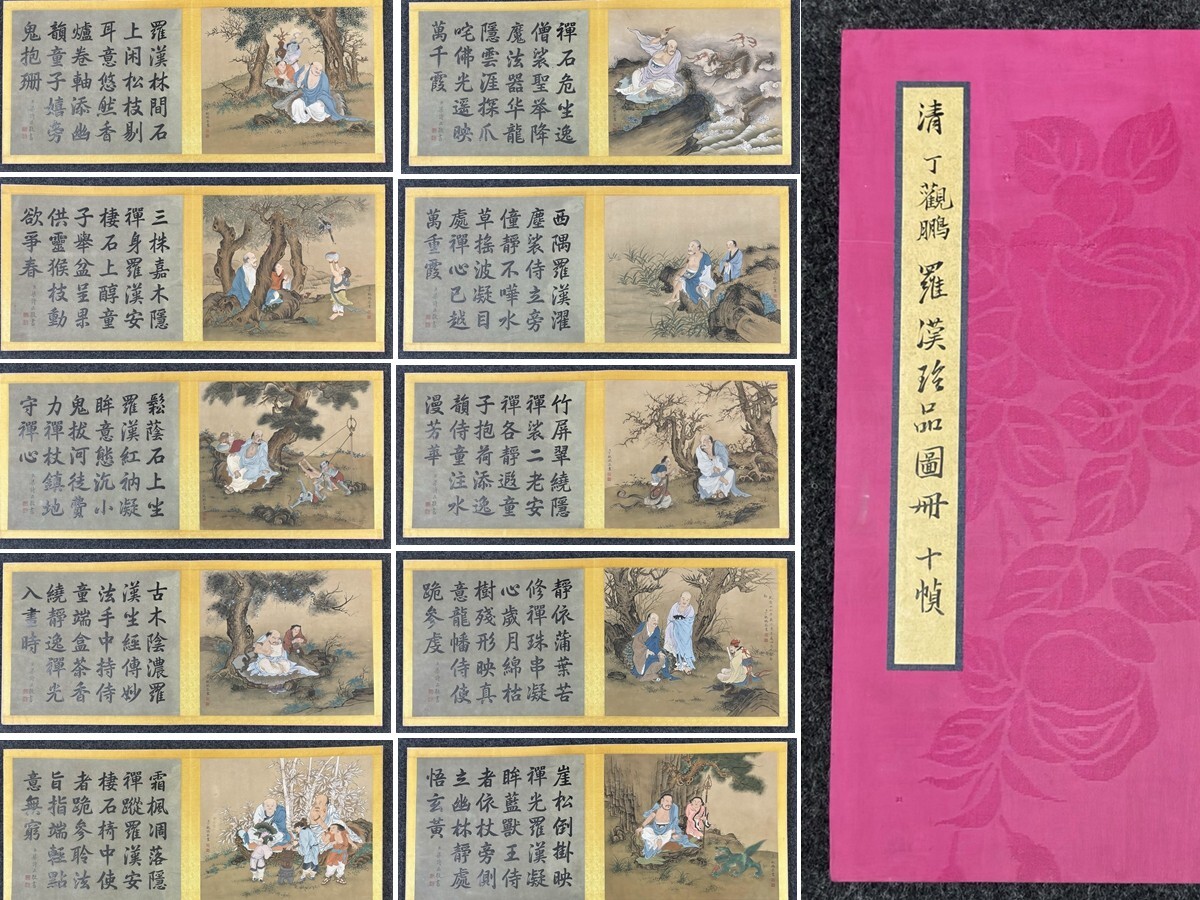 羅漢林間石
上闲松枝剔
耳意悠然香
爐卷軸添幽
韻童子嬉旁
鬼抱珊
禪石危坐逸
僧裟聖举降
魔法器华龍
隱雲涯探爪
咤佛光遥映
萬千霞
三株嘉木隱
禪身羅漢安
棲石上醇童
子舉盆呈果
供靈猴枝動
欲爭春
西隅羅漢濯
塵裟侍立旁
僮靜不嘩水
草搖波凝目
處禪心已越
萬重霞
鬆蔭石上坐
羅漢紅衲凝
眸意態沉小
鬼拔河徒費
力禪杖鎮地
守禪心
竹屏翠繞隱
禪裟二老安
禪各靜遐童
子抱荷添逸
韻侍童注水
漫芳華
古木陰濃羅
漢生經傳妙
法手中持侍
童端盒茶香
繞靜逸禪光
入畫時
靜依蒲葉苦
修禪珠串凝
心歲月綿枯
樹殘形映真
意龍幡侍使
跪參虔
霜楓凋落隱
禪蹤羅漢安
棲石椅中使
者跪參聆法
旨指端輕點
意無窮
崖松倒掛映
禪光羅漢凝
眸藍獸王侍
者依杖旁側
立幽林靜處
悟玄黃
清 丁觀鵬 羅漢珍品圖冊 十幀